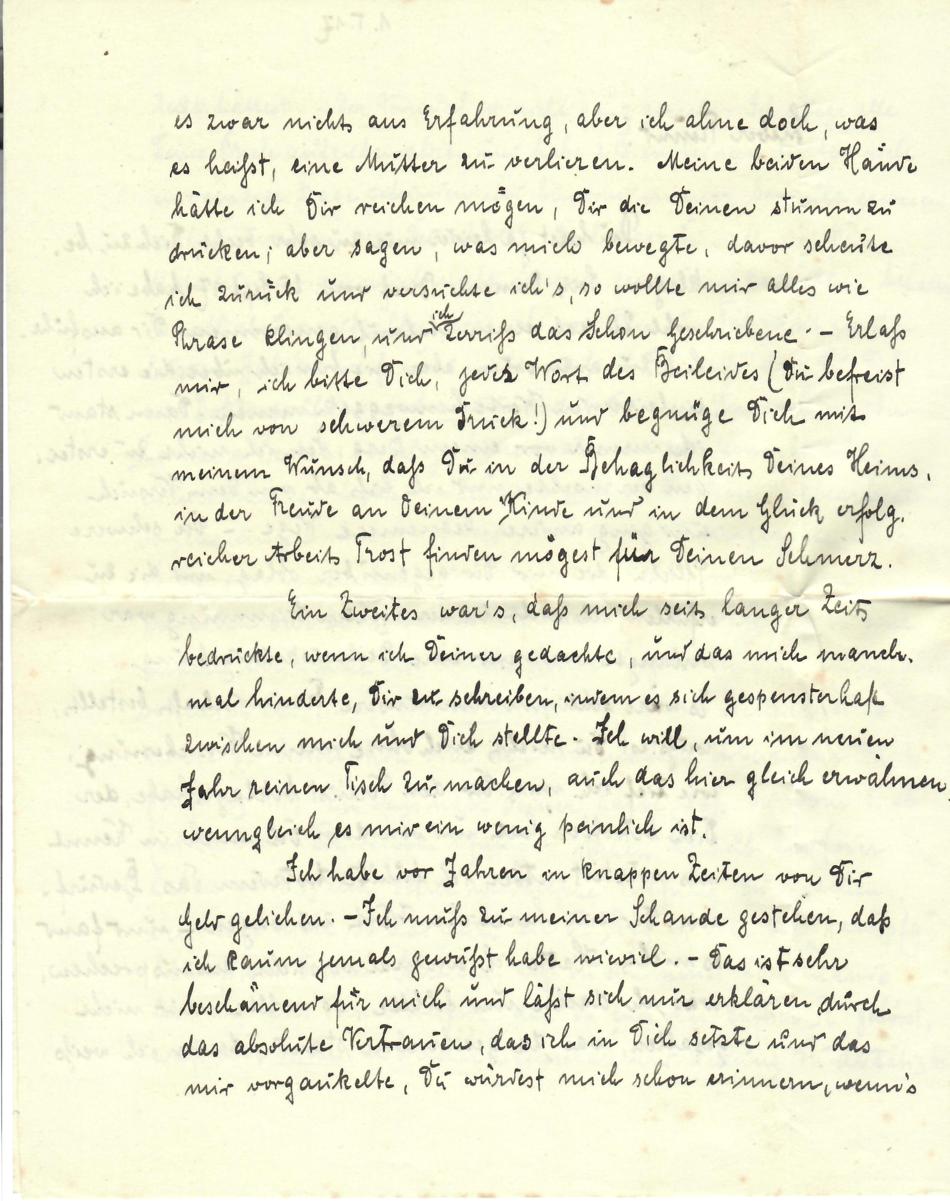 es zwar nicht aus Erfahrung, aber ich ahne doch, was
es heißt, eine Mutter zu verlieren. Meine beiden Hände
hätte ich Dir reichen mögen, Dir die Deinen stumm zu
drücken; aber sagen, was mich bewegte, davor scheute
ich zurück und versuchte ich's, so wollte mir alles wie
Phrase klingen, und ich zerriß das Schon Geschriebene. – Erlaß
mir, ich bitte Dich, jedes Wort des Beileides (Du befreist
mich von schwerem Druck!) und begnüge Dich mit
meinem Wunsch, daß Du in der Behaglichkeit Deines Heims,
in der Freude an Deinem Kinde und in dem Glück erfolg-
reicher Arbeit Trost finden mögest für Deinen Schmerz.
Ein Zweites war's, daß mich seit langer Zeit
bedrückte, wenn ich Deiner gedachte, und das mich manch-
mal hinderte, Dir zu schreiben, indem es sich gespensterhaft
zwischen mich und Dich stellte. Ich will, um im neuen
Jahr reinen Tisch zu machen, auch das hier gleich erwähnen,
wenngleich es mir ein wenig peinlich ist.
Ich habe vor Jahren in knappen Zeiten von Dir
Geld geliehen. – Ich muß zu meiner Schande gestehen, daß
ich kaum jemals gewußt habe wieviel. – Das ist sehr
beschämend für mich und läßt sich nur erklären durch
das absolute Vertrauen, das ich in Dich setzte und das
mir vorgaukelte, Du würdest mich schon erinnern, wenn's